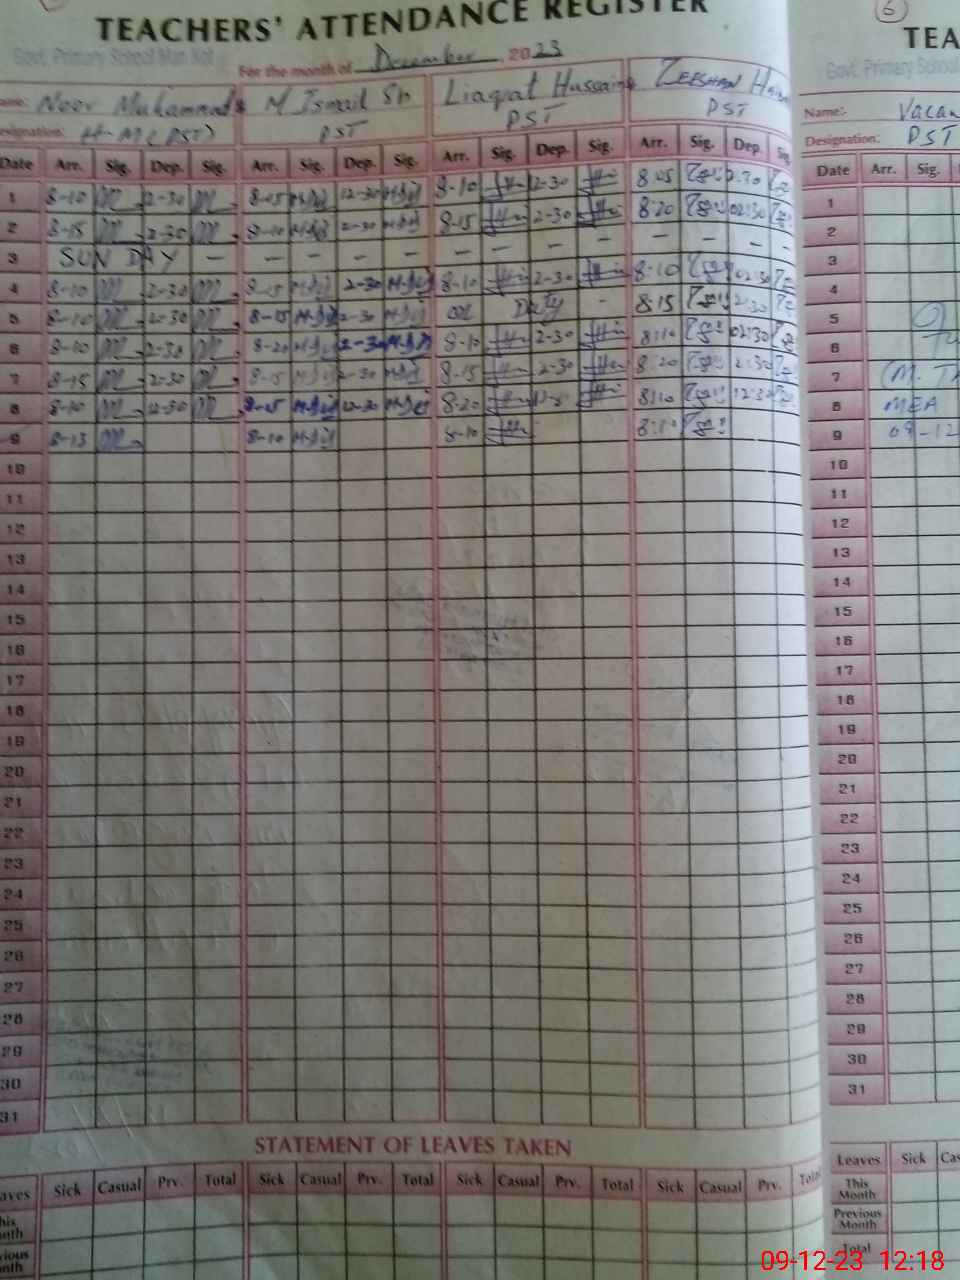 TEACHERS' ATTENDANCE REGISTER
Govt. Primary School Man Kot
For the month of December, 2023
Name: Noor Muhammad M Ismail Sh Liaqat Hussain ZEESHAN
Designation: H-M (PST) PST PST PST
Date Arr. Sig. Dep. Sig. Arr. Sig. Dep. Sig. Arr. Sig. Dep. Sig. Arr. Sig. Dep. Sig.
1 8-10 2-30 8-15 12-30 8-10 2-30 8:05 2:30
2 8-15 2-30 8-10 2-30 8-15 2-30 8:20 02:30
3 SUNDAY — — — — — — — — — —
4 8-10 2-30 8-15 2-30 8-10 2-30 8:10 02:30
5 8-10 2-30 8-15 2-30 on Duty - 8:15 2:30
6 8-10 2-30 8-20 2-30 8-10 2-30 8:10 02:30
7 8-15 2-30 8-15 2-30 8-15 2-30 8:20 2:30
8 8-10 12-30 8-15 12-30 8-20 8:10 12:30
9 8-13 8-10 8-10 8:10
10
11
12
13
14
15
16
17
18
19
20
21
22
23
24
25
26
27
28
29
30
31
STATEMENT OF LEAVES TAKEN
Leaves Sick Casual Prv. Total Sick Casual Prv. Total Sick Casual Prv. Total Sick Casual Prv. Total
This Month
Previous Month
6
TEA
Govt. Primary School
Name:- Vacan
Designation: PST
Date Arr. Sig.
1
2
3
4
5
6
7 (M. Th
8 MEA
9 09-12
10
11
12
13
14
15
16
17
18
19
20
21
22
23
24
25
26
27
28
29
30
31
Leaves Sick Cas
This Month
Previous Month
Total
09-12-23 12:18